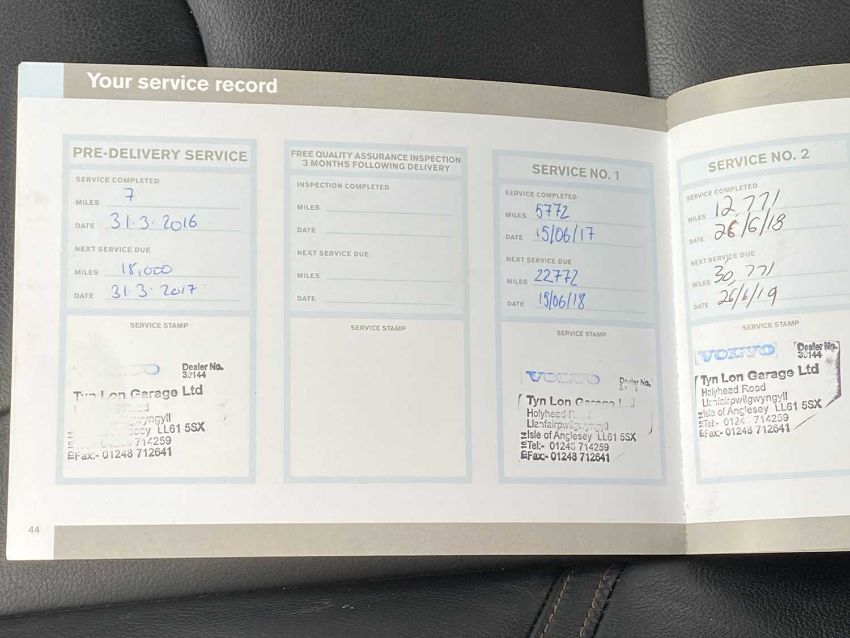 Your service record
PRE-DELIVERY SERVICE
SERVICE COMPLETED
MILES 7
DATE 31.3.2016
NEXT SERVICE DUE
MILES 18,000
DATE 31.3.2017
SERVICE STAMP
VOLVO
Dealer No.
Tyn Lon Garage Ltd
LL61 5SX
714259
Fax:- 01248 712641
FREE QUALITY ASSURANCE INSPECTION
3 MONTHS FOLLOWING DELIVERY
INSPECTION COMPLETED
MILES
DATE
NEXT SERVICE DUE
MILES
DATE
SERVICE STAMP
SERVICE NO. 1
SERVICE COMPLETED
MILES 5772
DATE 15/06/17
NEXT SERVICE DUE
MILES 22772
DATE 15/06/18
SERVICE STAMP
VOLVO
Dealer No.
Tyn Lon Garage
Holyhead
Llanfairpwllgwyngyll
Isle of Anglesey LL61 5SX
Tel:- 01248 714259
Fax:- 01248 712641
SERVICE NO. 2
SERVICE COMPLETED
MILES 12,771
DATE 26/6/18
NEXT SERVICE DUE
MILES 30,771
DATE 26/6/19
SERVICE STAMP
VOLVO
Dealer No.
Tyn Lon Garage Ltd
Holyhead Road
Isle of Anglesey LL61 5SX
Tel:- 01248 714259
Fax:- 01248 712641
44